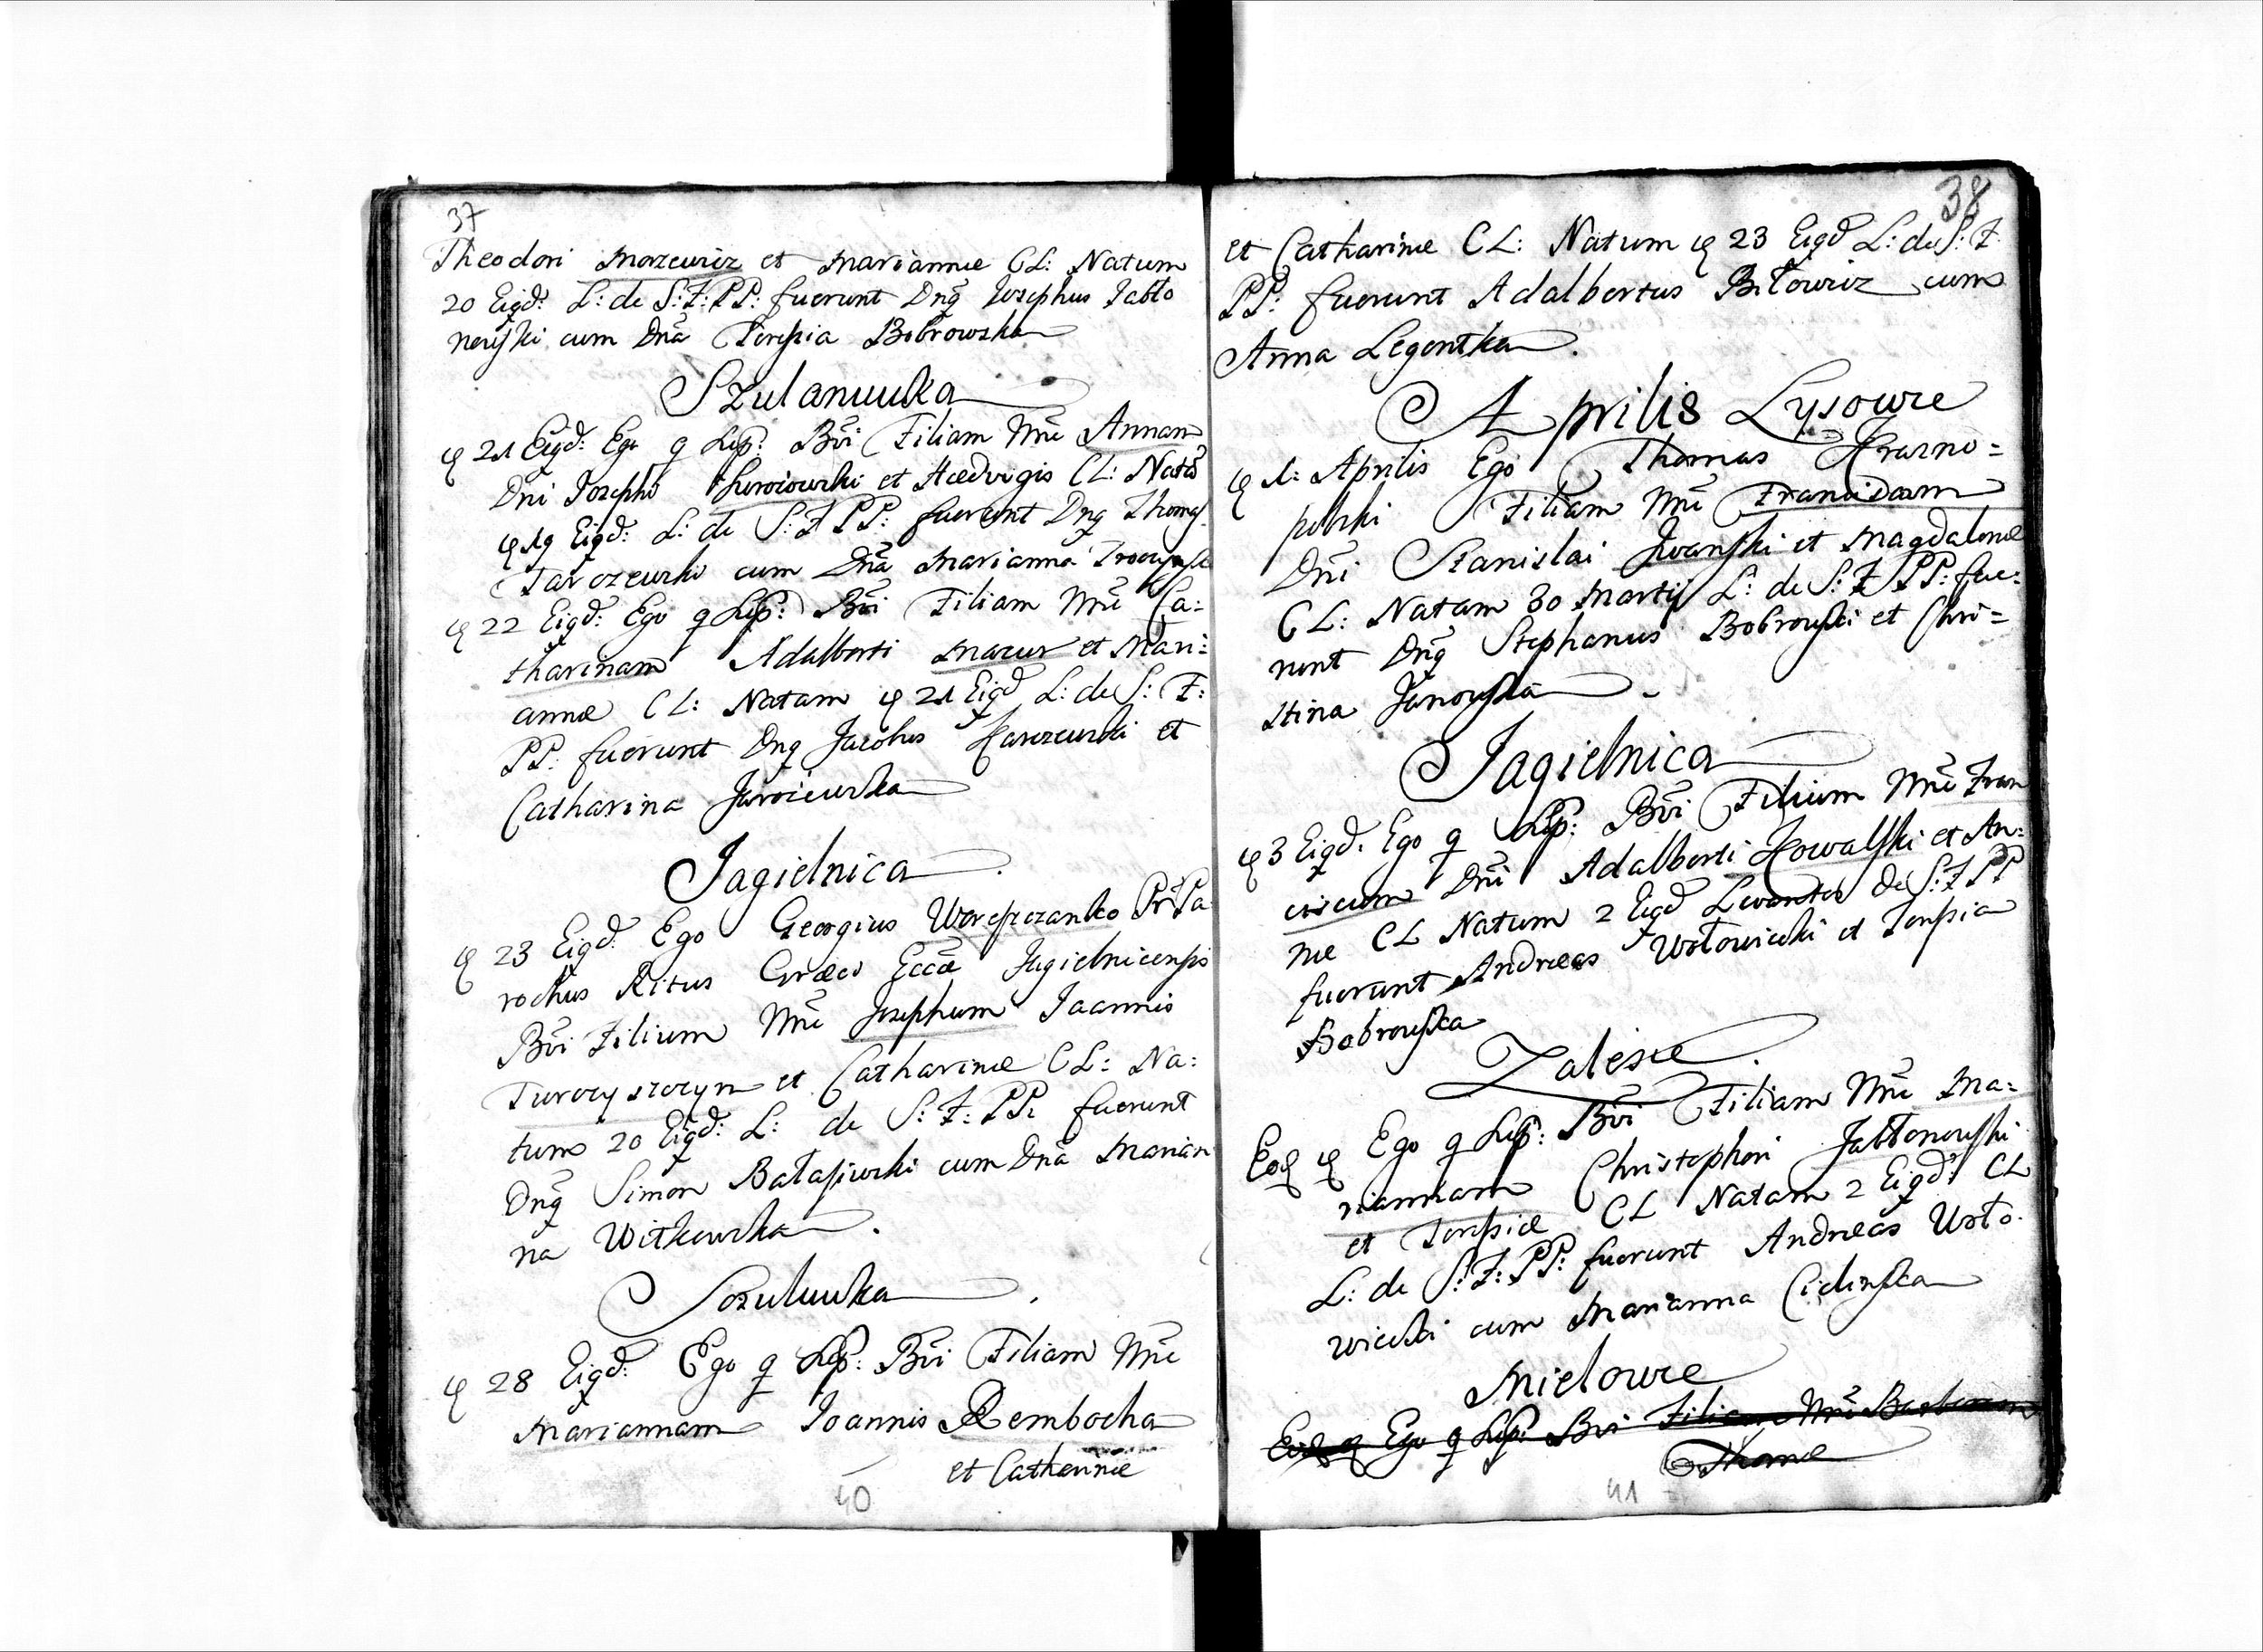 37
Theodori Mozewicz et Mariannæ CL: Natum
20 Eiqd: L: de S: F: PP: fuerunt Dnq Josephus Jabło
newski cum Dnā Teresia Bobrowska
Szulanuwka
21 Eiqd: Ego q Sup: Bvi Filiam Mne Annam
Dni Josephi et Hedvigis CL: Natā
19 Eiqd: L: de S: F PP: fuerunt Dnq Thomas
cum Dnā Marianna
22 Eiqd: Ego q Sup: Bvi Filiam Mne Ca=
tharinam Adalberti Mazur et Mari=
annæ CL: Natam 21 Eiqd L: de S: F:
PP: fuerunt Dnq Jacobus et
Catharina
Jagielnica
23 Eiqd: Ego Georgius Pr Pa
rochus Ritus Græci Eccæ Jagielnicensis
Bvi Filium Mne Josephum Joannis
et Catharinæ CL: Na=
tum 20 Eiqd: L: de S: F: PP: fuerunt
Dnq Simon cum Dnā Marian
na Witkowska
Szuluwka
28 Eiqd: Ego q Sup: Bvi Filiam Mne
Mariannam Joannis Rembocha
et Catherinæ
40
38
et Catharinæ CL: Natum 23 Eiqd L: de S: F:
PP: fuerunt Adalbertus Biłowicz cum
Anna Legentka
Aprilis Lysowce
1: Aprilis Ego Thomas Krasno=
polski Filiam Mne Franciscam
Dni Stanislai Iwanski et Magdalenæ
CL: Natam 30 Martij L: de S: F PP: fue=
runt Dnq Stephanus Bobrowski et Chri=
stina Janowska
Jagielnica
3 Eiqd: Ego q Sup: Bvi Filium Mne Fran
ciscum Dni Adalberti Kowalski et An=
næ CL Natum 2 Eiqd Levantes de S: F PP
fuerunt Andreas Wołowiecki et Teresia
Bobrowska
Zalesie
Eod Ego q Sup: Bvi Filiam Mne Ma=
riannam Christophori Jabłonowski
et Teresiæ CL Natam 2 Eiqd: CL
L: de S: F: PP: fuerunt Andreas Woło
wiecki cum Marianna Cielinska
Milowce
Eod Ego q Sup: Bvi Filiam Mne Barbaram
Thomæ
41